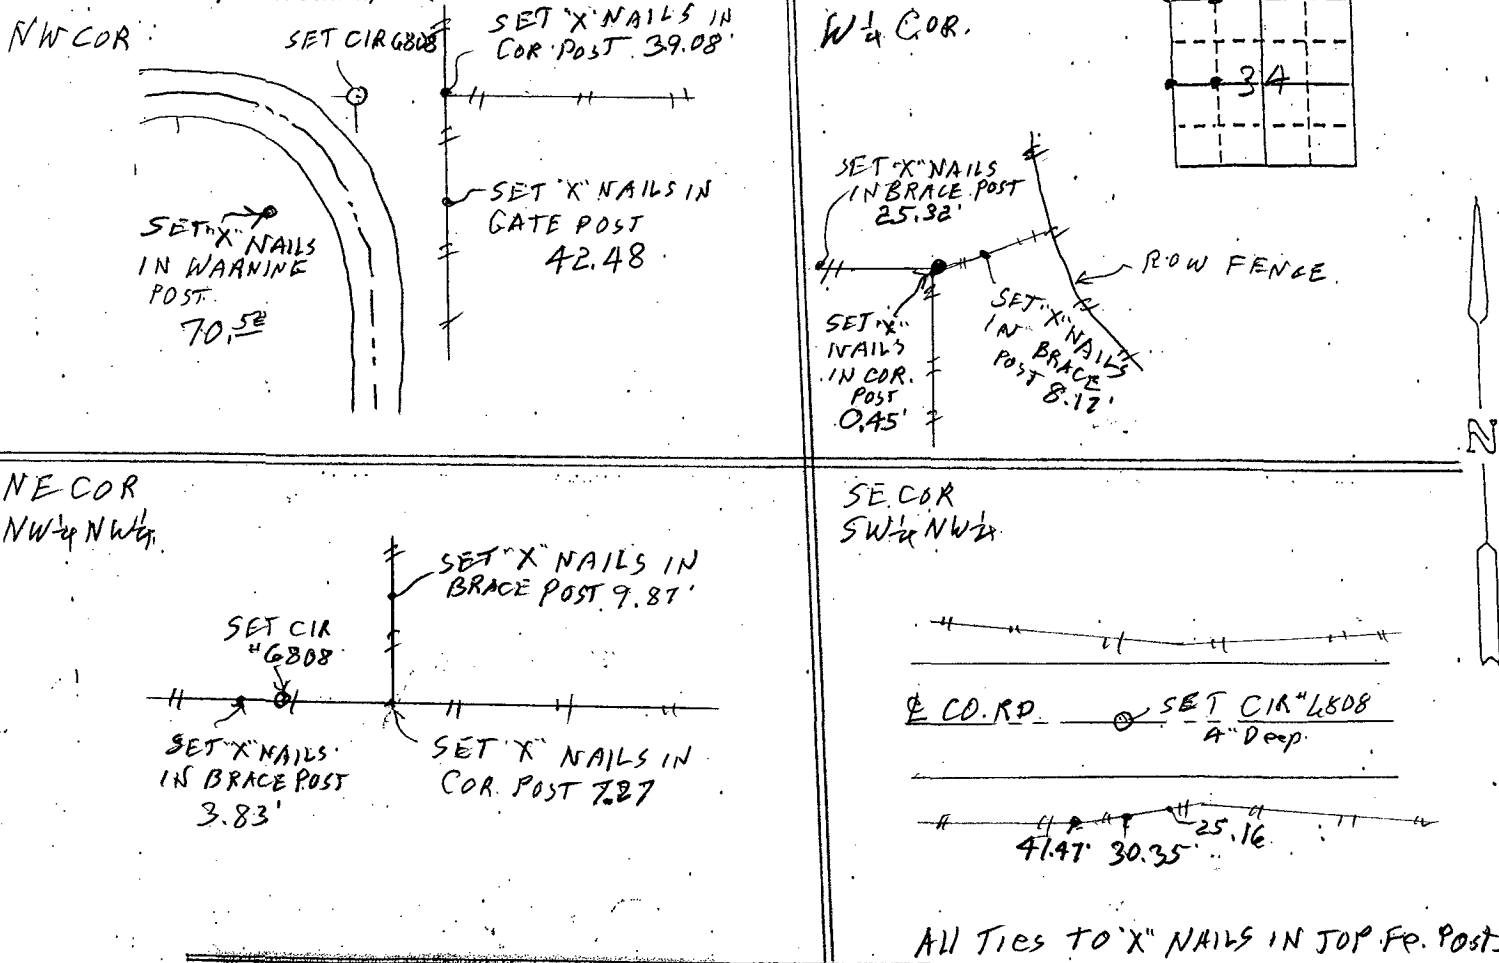 NW COR:
SET CIR 6808
SET "X" NAILS IN
COR. POST 39.08'
SET "X" NAILS IN
GATE POST
42.48
SET "X" NAILS
IN WARNING
POST.
70.52
W 1/4 COR.
34
SET "X" NAILS
IN BRACE POST
25.32'
ROW FENCE
SET "X"
NAILS
IN COR.
POST
0.45'
SET "X" NAILS
IN BRACE
POST 8.12'
N
NE COR
NW 1/4 NW 1/4
SET "X" NAILS IN
BRACE POST 9.87'
SET CIR
#6808
SET "X" NAILS
IN BRACE POST
3.83'
SET "X" NAILS IN
COR. POST 7.27
SE COR
SW 1/4 NW 1/4
℄ CO. RD.
SET CIR #6808
4" Deep.
41.47' 30.35' 25.16
All Ties TO "X" NAILS IN TOP Fe. Post.